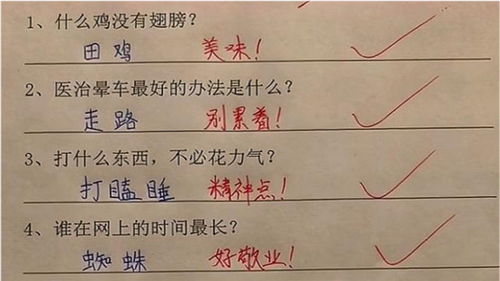 1、什么鸡没有翅膀?
田鸡 美味!
2、医治晕车最好的办法是什么?
走路 别累着!
3、打什么东西,不必花力气?
打瞌睡 精神点!
4、谁在网上的时间最长?
蜘蛛 好敬业!